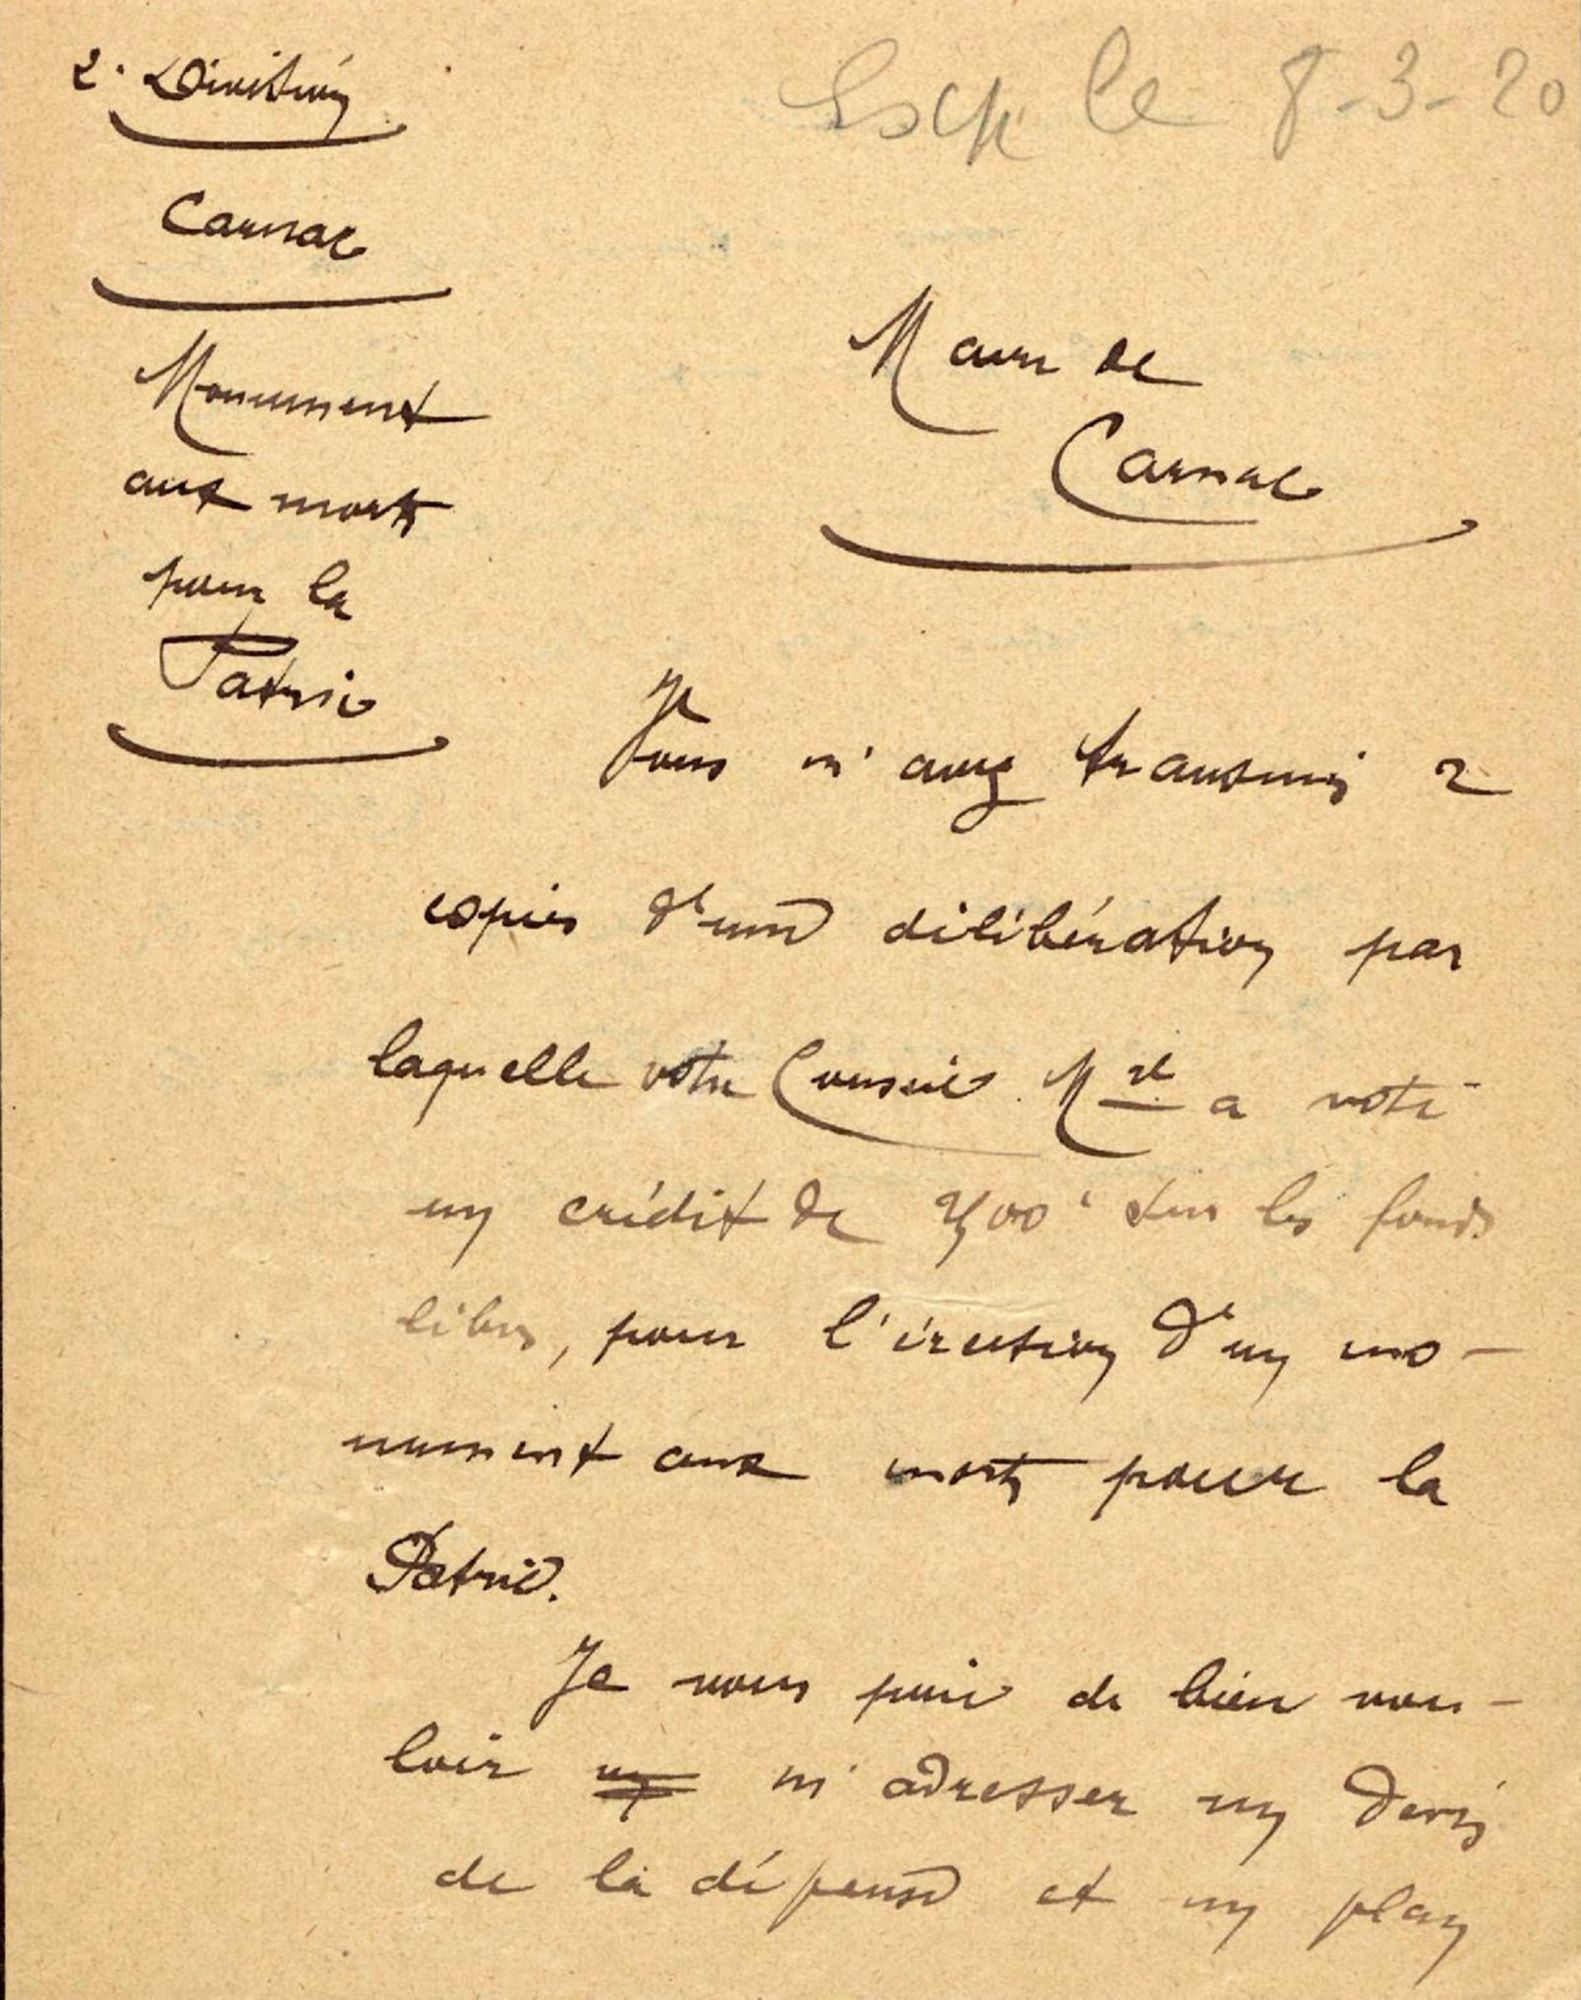 2. Division
Carnac
Monument
aux morts
pour la
Patrie
le 8-3-20
Maire de
Carnac
Vous m'avez transmis 2
copies d'une délibération par
laquelle votre Conseil Mal a voté
un crédit de sur les fonds
libres, pour l'érection d'un mo-
nument aux morts pour la
Patrie.
Je vous prie de bien vou-
loir un m'adresser un devis
de la dépense et un plan